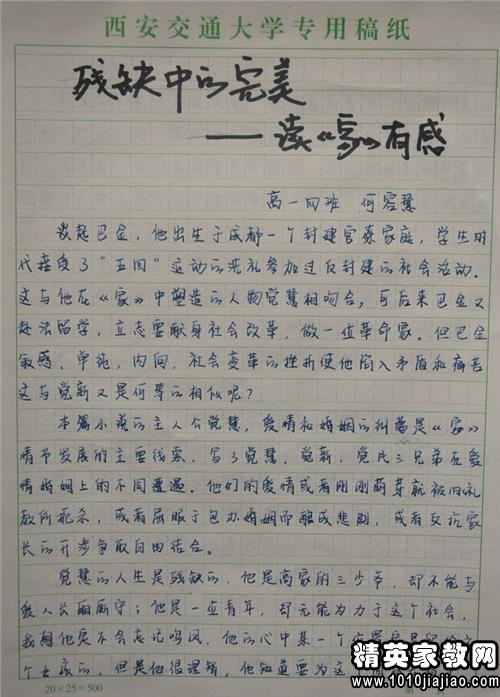 西安交通大学专用稿纸
残缺中的完美
——读《家》有感
高一四班 何容慧
谈起巴金，他出生于成都一个封建官僚家庭，学生时
代接受了"五四"运动的洗礼参加过反封建的社会活动。
这与他在《家》中塑造的人物觉慧相吻合，可后来巴金又
赴法留学，立志要献身社会改革，做一位革命家。但巴金
敏感，单纯，内向，社会变革的挫折使他陷入矛盾和痛苦
这与觉新又是何等的相似呢？
本篇小说的主人公觉慧，爱情和婚姻的纠葛是《家》
情节发展的主要线索，写了觉慧，觉新，觉民三兄弟在爱
情婚姻上的不同遭遇。他们的爱情或者刚刚萌芽就被旧礼
教所扼杀，或者屈服于包办婚姻而酿成悲剧，或者反抗家
长的开步争取自由结合。
觉慧的人生是残缺的，他是高家的三少爷，却不能与
爱人长厢厮守；他是一位青年，却无能为力于这个社会，
我想他是不会忘记鸣凤，他的心中某一个位置
个女孩的，但是他很理智，他知道要为这
20×25=500
精英家教网
www.1010jiajiao.com